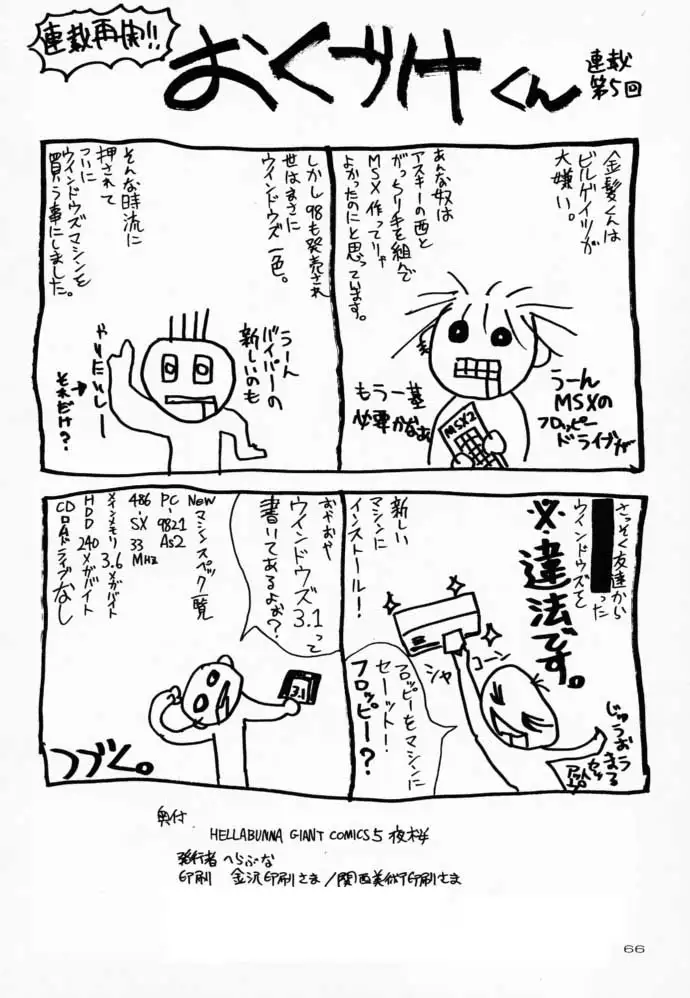 連載再開!!
おくづけくん
連載
第5回
金髪くんは
ビルゲイツが
大嫌い。
あんな奴は
アスキーの西と
がっちり手を組んで
MSX作ってりゃ
よかったのにと思っています。
うーん
MSXの
フロッピー
ドライブが
もう一基
必要かなぁ
MSX2
しかし98も発売され
世はまさに
ウインドウズ一色。
そんな時流に
押されて
ついに
ウインドウズマシンを
買う事にしました。
うーん
バイパーの
新しいのも
やりたいしー
それだけ?
さっそく友達から
った
ウインドウズを
※違法です。
新しい
マシンに
インストール!
シャ
コーン
フロッピーをマシンに
セーット!
フロッピー?
じゅうおう
まるセッ
おやおや
ウインドウズ3.1って
書いてあるよぉ?
3.1
Newマシンスペック一覧
PC-9821 As2
486SX 33MHz
メインメモリ 3.6メガバイト
HDD 240メガバイト
CDロムドライブなし
つづく。
奥付
HELLABUNNA GIANT COMICS 5 夜桜
発行者 へらぶな
印刷 金沢印刷さま/関西美術印刷さま
66